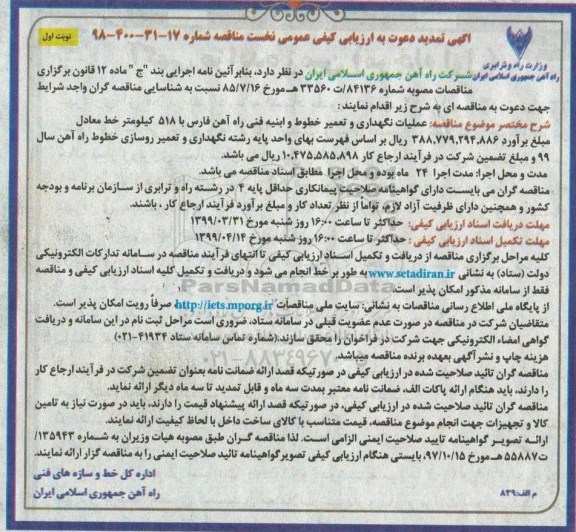 آگهی تمدید دعوت به ارزیابی کیفی عمومی نخست مناقصه شماره ۱۷-۳۱-۴۰۰-۹۸
نوبت اول
وزارت راه و شهرسازی
راه آهن جمهوری اسلامی ایران
شرکت راه آهن جمهوری اسلامی ایران در نظر دارد، بنابر آئین نامه اجرایی بند "ج" ماده ۱۲ قانون برگزاری
مناقصات مصوبه شماره ۸۴۱۳۶/ت ۳۳۵۶۰ هـ مورخ ۸۵/۷/۱۶ نسبت به شناسایی مناقصه گران واجد شرایط
جهت دعوت به مناقصه ای به شرح زیر اقدام نمایند :
شرح مختصر موضوع مناقصه: عملیات نگهداری و تعمیر خطوط و ابنیه فنی راه آهن فارس با ۵۱۸ کیلومتر خط معادل
مبلغ برآورد ۳۸۸,۷۷۹,۲۹۴,۸۸۶ ریال بر اساس فهرست بهای واحد پایه رشته نگهداری و تعمیر روسازی خطوط راه آهن سال
۹۹ و مبلغ تضمین شرکت در فرآیند ارجاع کار ۱۰,۴۷۵,۵۸۵,۸۹۸ ریال می باشد.
مدت و محل اجرا: مدت اجرا ۲۴ ماه بوده و محل اجرا مطابق اسناد مناقصه می باشد.
مناقصه گران می بایست دارای گواهینامه صلاحیت پیمانکاری حداقل پایه ۴ در رشته راه و ترابری از سازمان برنامه و بودجه
کشور و همچنین دارای ظرفیت آزاد لازم، تواما از نظر تعداد کار و مبلغ برآورد فرآیند ارجاع کار ، باشند.
مهلت دریافت اسناد ارزیابی کیفی: حداکثر تا ساعت ۱۶:۰۰ روز شنبه مورخ ۱۳۹۹/۰۳/۳۱
مهلت تکمیل اسناد ارزیابی کیفی : حداکثر تا ساعت ۱۶:۰۰ روز شنبه مورخ ۱۳۹۹/۰۴/۱۴
کلیه مراحل برگزاری مناقصه از دریافت و تکمیل اسناد ارزیابی کیفی تا انتهای فرآیند مناقصه در سامانه تدارکات الکترونیکی
دولت (ستاد) به نشانی www.setadiran.ir به طور بر خط انجام می شود و دریافت و تکمیل کلیه اسناد ارزیابی کیفی و مناقصه
فقط از سامانه مذکور امکان پذیر است.
از پایگاه ملی اطلاع رسانی مناقصات به نشانی: سایت ملی مناقصات http://iets.mporg.ir صرفاً رویت امکان پذیر است.
متقاضیان شرکت در مناقصه در صورت عدم عضویت قبلی در سامانه ستاد، ضروری است مراحل ثبت نام در این سامانه و دریافت
گواهی امضاء الکترونیکی جهت شرکت در فراخوان را محقق سازند.(شماره تماس سامانه ستاد ۴۱۹۳۴-۰۲۱)
هزینه چاپ و نشر آگهی بعهده برنده مناقصه میباشد.
مناقصه گران تائید صلاحیت شده در ارزیابی کیفی در صورتیکه قصد ارائه ضمانت نامه بعنوان تضمین شرکت در فرآیند ارجاع کار
را دارند، باید هنگام ارائه پاکات الف، ضمانت نامه معتبر بمدت سه ماه و قابل تمدید تا سه ماه دیگر ارائه نماید.
مناقصه گران تائید صلاحیت شده در ارزیابی کیفی، در صورتیکه قصد ارائه پیشنهاد قیمت را دارند، باید در صورت نیاز به تامین
کالا و تجهیزات جهت انجام موضوع مناقصه، قیمت متناسب با کالای ساخت داخل با لحاظ کیفیت ارائه نمایند.
ارائه تصویر گواهینامه تایید صلاحیت ایمنی الزامی است. لذا مناقصه گران طبق مصوبه هیات وزیران به شماره ۱۳۵۹۴۳/
ت ۵۵۸۸۷ هـ مورخ ۹۷/۱۰/۱۵، بایستی هنگام ارزیابی کیفی تصویر گواهینامه تائید صلاحیت ایمنی را به مناقصه گزار ارائه نمایند.
اداره کل خط و سازه های فنی
راه آهن جمهوری اسلامی ایران
م الف:۸۳۹
ParsNamadData
۰۲۱-۸۸۳۴۹۶۷۰